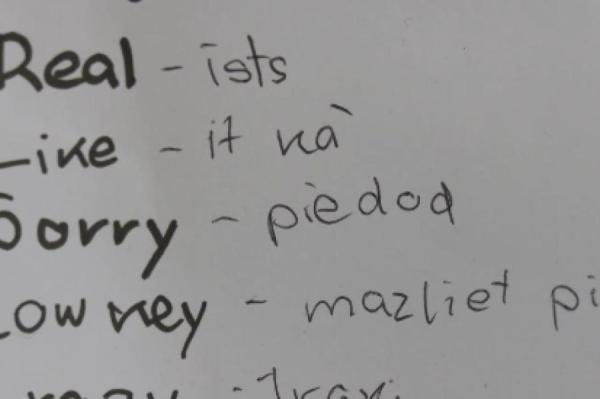 Real - īsts
Like - it kā
Sorry - piedod
Low key - mazliet